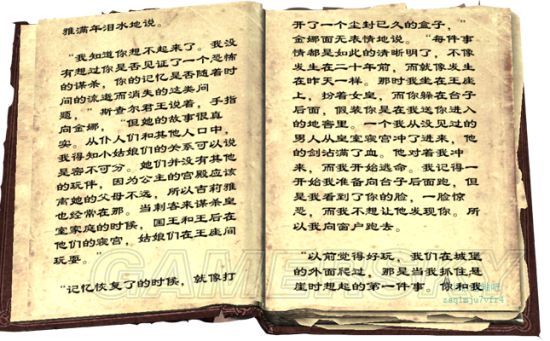 雅满年泪水地说。
“我知道你想不起来了。我没
有想过你是否见证了一个恐怖
的谋杀，你的记忆是否随着时
间的流逝而消失的这类问
题，”斯查尔君王说着，手指
向金娜，“但她的故事很真
实。从仆人们和其他人口中，
我得知小姑娘们的关系可以说
是密不可分。她们并没有其他
的玩伴，因为公主的宫殿应该
离她的父母不远，所以吉莉雅
也经常在那。当刺客来谋杀皇
室家庭的时候，国王和王后在
他们的寝宫，姑娘们在王座间
玩耍。”
“记忆恢复了的时候，就像打
开了一个尘封已久的盒子，”
金娜面无表情地说。“每件事
情都是如此的清晰明了，不像
发生在二十年前，而就像发生
在昨天一样。那时我坐在王座
上，扮着女皇，而你躲在台子
后面，假装你是在我送你进入
的地窖里。一个我从没见过的
男人从皇室寝宫冲了进来，他
的剑沾满了血。他对着我冲
来，而我开始逃命。我记得一
开始我准备向台子后面跑，但
是我看到了你的脸，一脸惊
恐，而我不想让他发现你。所
以我向窗户跑去。
“以前觉得好玩，我们在城堡
的外面爬过，那是当我抓住悬
崖时想起的第一件事。你和我
GAMERSKY
zaqimju7vfr4